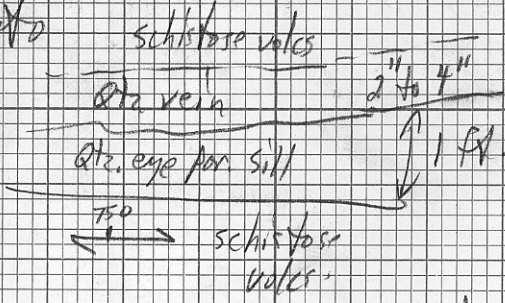 schistose volcs
Qtz vein 2" to 4"
Qtz. eye por. sill 1 ft.
750
schistose
volcs.